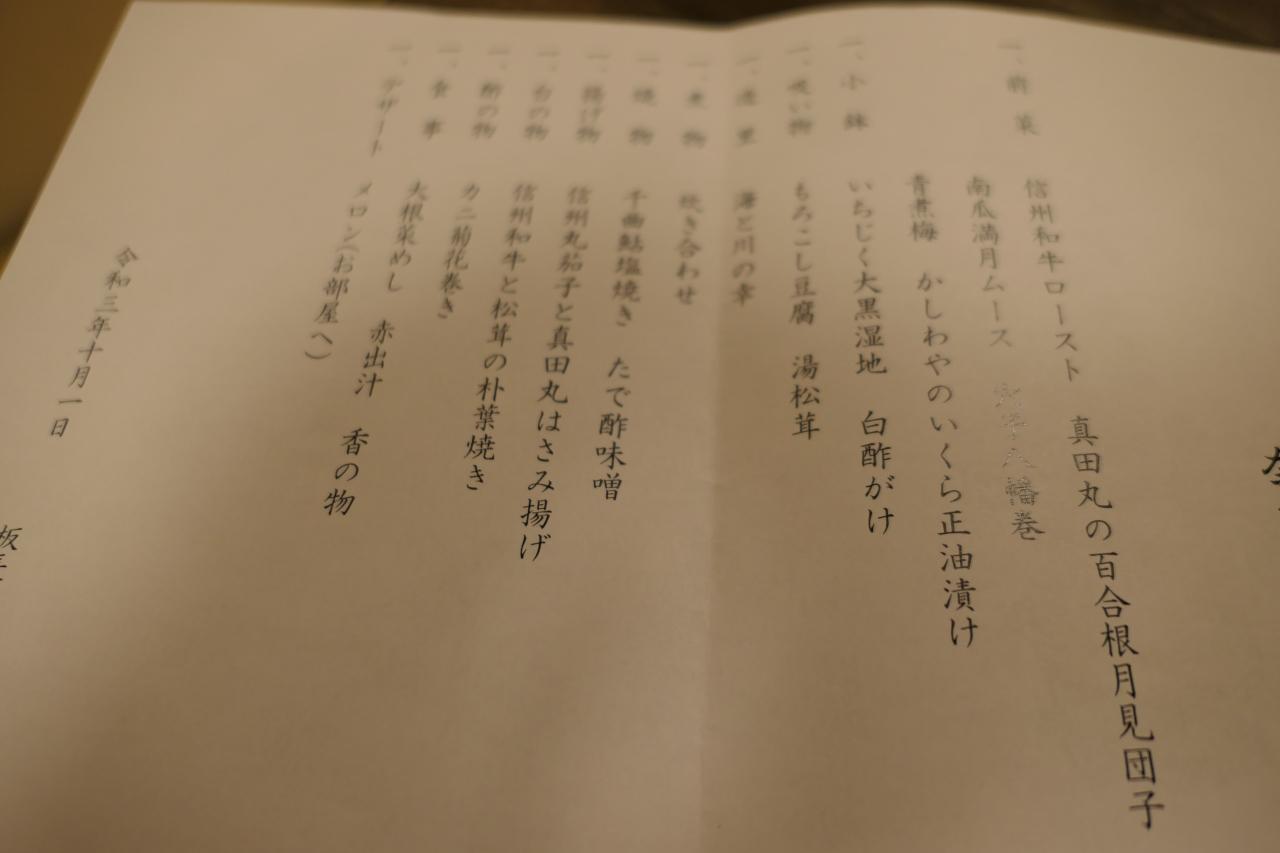 一、前菜 信州和牛ロースト 真田丸の百合根月見団子
南瓜満月ムース 八幡巻
青煮梅 かしわやのいくら正油漬け
一、小鉢 いちじく大黒湿地 白酢がけ
一、吸い物 もろこし豆腐 湯松茸
一、産里 海と川の幸
一、煮物 炊き合わせ
一、焼物 千曲鮎塩焼き たで酢味噌
一、揚げ物 信州丸茄子と真田丸はさみ揚げ
一、台の物 信州和牛と松茸の朴葉焼き
一、酢の物 カニ菊花巻き
一、食事 大根菜めし 赤出汁 香の物
一、デザート メロン(お部屋へ)
令和三年十月一日
板